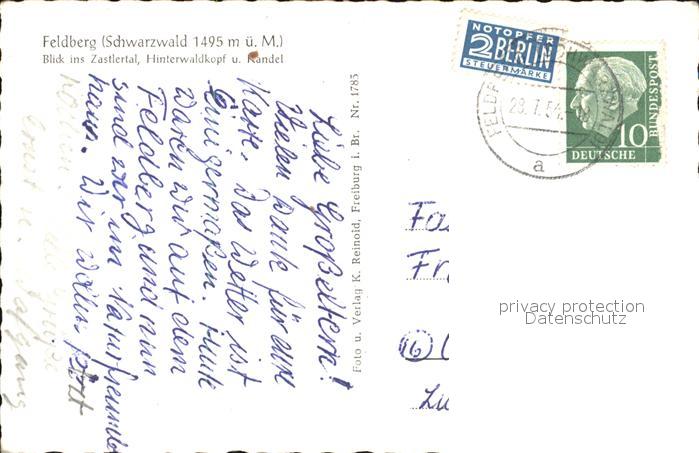 Feldberg (Schwarzwald 1495 m ü. M.)
Blick ins Zastlertal, Hinterwaldkopf u. Kandel
Liebe Großeltern!
Vielen Dank für eure
Karte. Das Wetter ist
einigermaßen. Heute
waren wir auf dem
Feldberg und nun
sind wir im Naturfreunde
haus. Wir wollen jetzt
Foto u. Verlag K. Reinold, Freiburg i. Br. Nr. 1785
NOTOPFER
2 BERLIN
STEUERMARKE
10
DEUTSCHE
BUNDESPOST
a
Fa
Fr
(16) (
Lu
privacy protection
Datenschutz